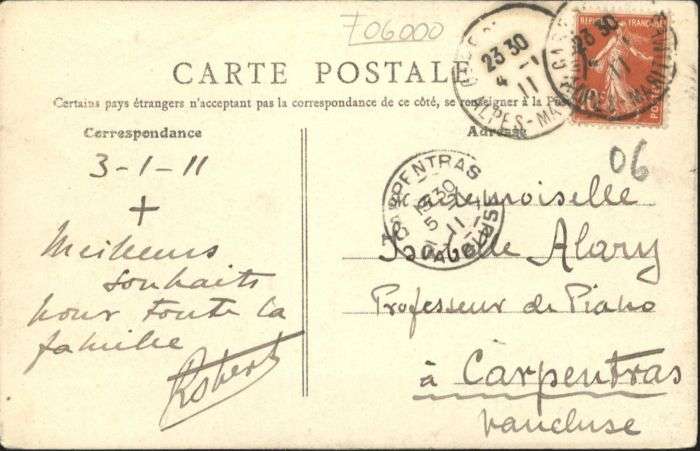 706000
CARTE POSTALE
Certains pays étrangers n'acceptant pas la correspondance de ce côté, se renseigner à la Poste
Correspondance
Adresse
3-1-11
+
Meilleurs
souhaits
pour toute la
famille
Robert
Mademoiselle
Alary
Professeur de Piano
à Carpentras
Vaucluse
06
23 30
4 -1
11
ALPES-MA
GARE
23 30
11
CARPENTRAS
15 30
5
11
VAUCLUSE